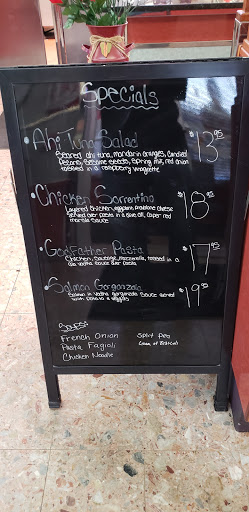 Specials
Ahi Tuna Salad $13.95
Seared ahi tuna, mandarin oranges, candied
pecans, sesame seeds, spring mix, red onion
tossed in a raspberry vinaigrette
Chicken Sorrentino $18.95
Layered chicken, eggplant, provolone cheese
served over pasta in a olive oil, caper red
marsala sauce
Godfather Pasta $17.95
Chicken, sausage, mozzarella, tossed in a
vodka sauce over pasta
Salmon Gorgonzola $19.95
Salmon in vodka gorgonzola sauce served
with potato & veggies
Soups:
French Onion Split Pea
Pasta Fagioli Cream of Broccoli
Chicken Noodle